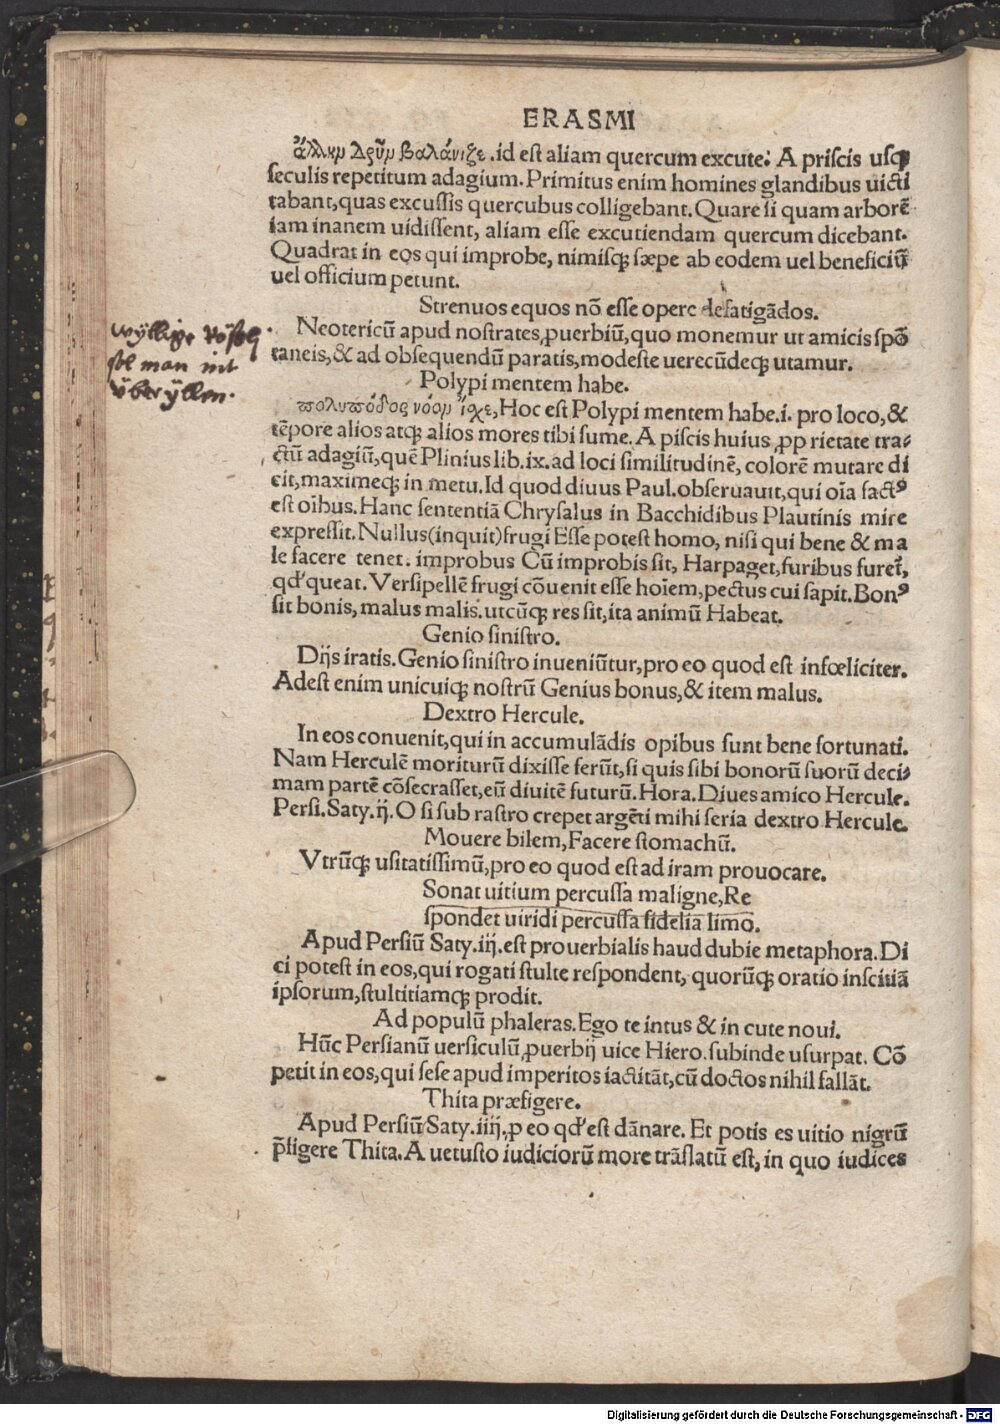 ERASMI
ἄλλην Δρῦν βαλάνιζε.id est aliam quercum excute: A priscis usqꝫ
seculis repetitum adagium.Primitus enim homines glandibus uicti
tabant,quas excussis quercubus colligebant.Quare si quam arborẽ
iam inanem uidissent, aliam esse excutiendam quercum dicebant.
Quadrat in eos qui improbe, nimisqꝫ sæpe ab eodem uel beneficiũ
uel officium petunt.
Strenuos equos nõ esse opere defatigãdos.
wÿllige rößlen
sol man nit
überÿllen.
Neotericũ apud nostrates,ꝓuerbiũ,quo monemur ut amicis spõ
taneis,& ad obsequendũ paratis,modeste uerecũdeqꝫ utamur.
Polypi mentem habe.
πολυπόδος νόον ἴσχε,Hoc est Polypi mentem habe.i. pro loco,&
tẽpore alios atqꝫ alios mores tibi sume. A piscis huius ꝓprietate tra⸗
ctũ adagiũ,quẽ Plinius lib.ix.ad loci similitudinẽ, colorẽ mutare di
cit,maximeqꝫ in metu.Id quod diuus Paul.obseruauit,qui oĩa factꝰ
est oĩbus.Hanc sententiã Chrysalus in Bacchidibus Plautinis mire
expressit.Nullus(inquit)frugi Esse potest homo, nisi qui bene & ma
le facere tenet. improbus Cũ improbis sit, Harpaget,furibus furet̃,
qđ queat.Versipellẽ frugi cõuenit esse hoĩem,pectus cui sapit.Bonꝰ
sit bonis, malus malis.utcũqꝫ res sit,ita animũ Habeat.
Genio sinistro.
Dijs iratis.Genio sinistro inueniũtur,pro eo quod est infœliciter.
Adest enim unicuiqꝫ nostrũ Genius bonus,& item malus.
Dextro Hercule.
In eos conuenit,qui in accumulãdis opibus sunt bene fortunati.
Nam Herculẽ moriturũ dixisse ferũt,si quis sibi bonorũ suorũ deci⸗
mam partẽ cõsecrasset,eũ diuitẽ futurũ.Hora.Diues amico Hercule.
Persi.Saty.ij.O si sub rastro crepet argẽti mihi seria dextro Hercule.
Mouere bilem,Facere stomachũ.
Vtrũqꝫ usitatissimũ,pro eo quod est ad iram prouocare.
Sonat uitium percussa maligne,Re
spondet uiridi percussa fidelia limo.
Apud Persiũ Saty.iij.est prouerbialis haud dubie metaphora.Di
ci potest in eos,qui rogati stulte respondent, quorũqꝫ oratio inscitiã
ipsorum,stultitiamqꝫ prodit.
Ad populũ phaleras.Ego te intus & in cute noui.
Hũc Persianũ uersiculũ,ꝓuerbij uice Hiero.subinde usurpat. Cõ
petit in eos,qui sese apud imperitos iactitãt,cũ doctos nihil fallãt.
Thita præfigere.
Apud Persiũ Saty.iiij.ꝓ eo qđ est dãnare. Et potis es uitio nigrũ
p̃figere Thita.A uetusto iudiciorũ more trãslatũ est, in quo iudices
Digitalisierung gefördert durch die Deutsche Forschungsgemeinschaft - DFG